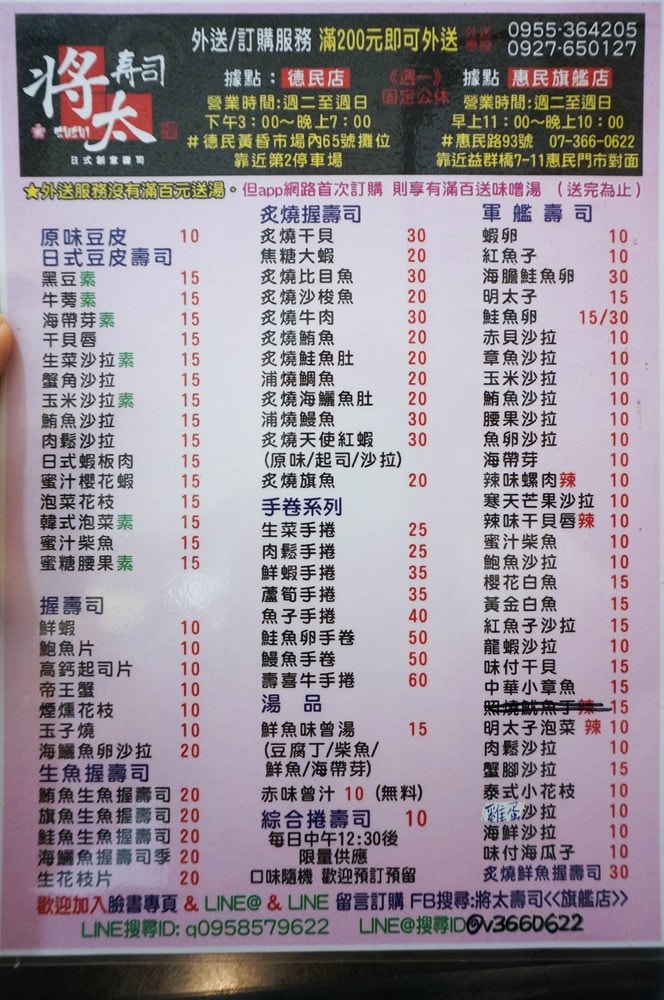 將太壽司
SUSHI
日式創意壽司
外送/訂購服務 滿200元即可外送
外送專線
0955-364205
0927-650127
據點:德民店
營業時間:週二至週日
下午3:00~晚上7:00
#德民黃昏市場內65號攤位
靠近第2停車場
《週一》
固定公休
據點 惠民旗艦店
營業時間:週二至週日
早上11:00~晚上10:00
#惠民路93號 07-366-0622
靠近益群橋7-11惠民門市對面
★外送服務沒有滿百元送湯。但app網路首次訂購 則享有滿百送味噌湯 (送完為止)
原味豆皮 10
日式豆皮壽司
黑豆素 15
牛蒡素 15
海帶芽素 15
干貝唇 15
生菜沙拉素 15
蟹角沙拉 15
玉米沙拉素 15
鮪魚沙拉 15
肉鬆沙拉 15
日式蝦板肉 15
蜜汁櫻花蝦 15
泡菜花枝 15
韓式泡菜素 15
蜜汁柴魚 15
蜜糖腰果素 15
握壽司
鮮蝦 10
鮑魚片 10
高鈣起司片 10
帝王蟹 10
煙燻花枝 10
玉子燒 10
海鱺魚卵沙拉 20
生魚握壽司
鮪魚生魚握壽司 20
旗魚生魚握壽司 20
鮭魚生魚握壽司 20
海鱺魚握壽司季 20
生花枝片 20
炙燒握壽司
炙燒干貝 30
焦糖大蝦 20
炙燒比目魚 30
炙燒沙梭魚 20
炙燒牛肉 30
炙燒鮪魚 20
炙燒鮭魚肚 20
浦燒鯛魚 20
炙燒海鱺魚肚 20
浦燒鰻魚 30
炙燒天使紅蝦 30
(原味/起司/沙拉)
炙燒旗魚 20
手卷系列
生菜手捲 25
肉鬆手捲 25
鮮蝦手捲 35
蘆筍手捲 35
魚子手捲 40
鮭魚卵手卷 50
鰻魚手卷 50
壽喜牛手捲 60
湯 品
鮮魚味曾湯 15
(豆腐丁/柴魚/
鮮魚/海帶芽)
赤味曾汁 10 (無料)
綜合捲壽司 10
每日中午12:30後
限量供應
口味隨機 歡迎預訂預留
軍艦壽司
蝦卵 10
紅魚子 10
海膽鮭魚卵 30
明太子 15
鮭魚卵 15/30
赤貝沙拉 10
章魚沙拉 10
玉米沙拉 10
鮪魚沙拉 10
腰果沙拉 10
魚卵沙拉 10
海帶芽 10
辣味螺肉辣 10
寒天芒果沙拉 10
辣味干貝唇辣 10
蜜汁柴魚 10
鮑魚沙拉 10
櫻花白魚 15
黃金白魚 15
紅魚子沙拉 15
龍蝦沙拉 10
味付干貝 15
中華小章魚 15
照燒魷魚丁辣 15
明太子泡菜 辣 10
肉鬆沙拉 10
蟹腳沙拉 15
泰式小花枝 10
雞蛋沙拉 10
海鮮沙拉 10
味付海瓜子 10
炙燒鮮魚握壽司 30
歡迎加入臉書專頁 & LINE@ & LINE 留言訂購 FB搜尋:將太壽司<<旗艦店>>
LINE搜尋ID: q0958579622 LINE@搜尋ID@v3660622